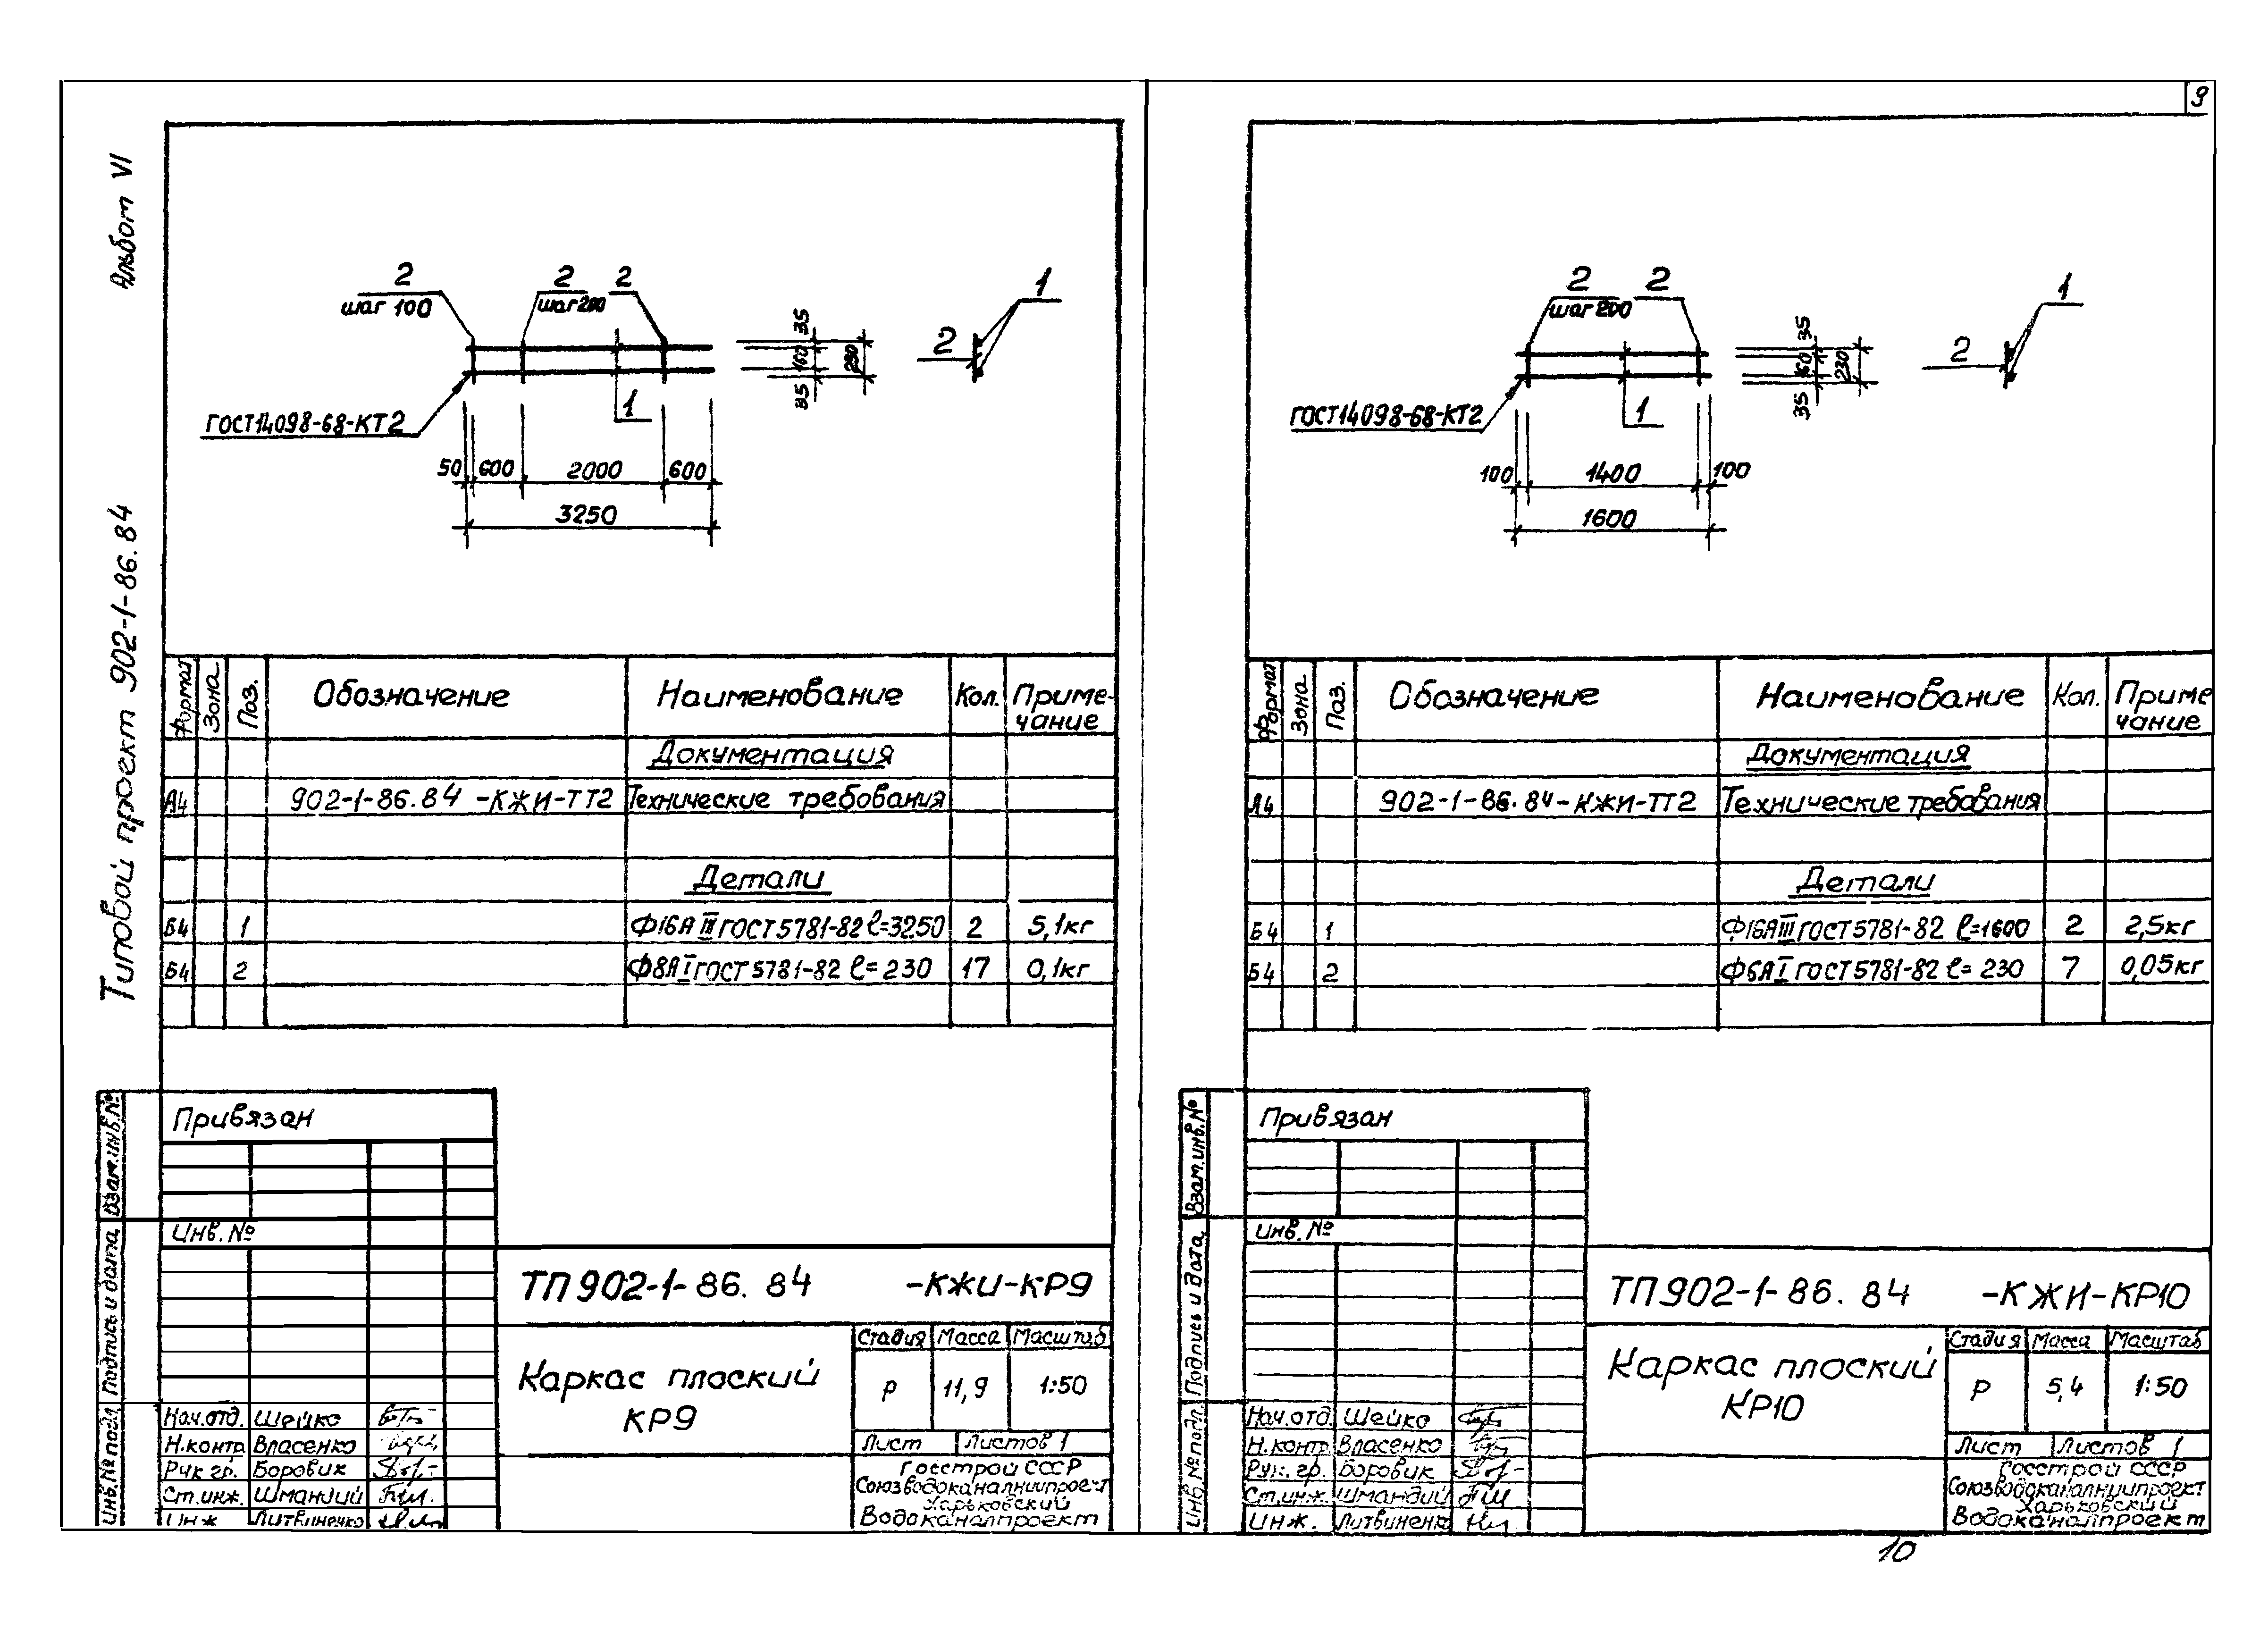 9
Альбом VI
Типовой проект 902-1-86.84
2
шаг 100
2
шаг 200
2
1
2
1
ГОСТ14098-68-КТ2
35
160
35
230
50 600 2000 600
3250
Формат Зона Поз. Обозначение Наименование Кол. Приме-
чание
Документация
А4 902-1-86.84 -КЖИ-ТТ2 Технические требования
Детали
Б4 1 Ф16АIII ГОСТ5781-82 ℓ=3250 2 5,1кг
Б4 2 Ф8АI ГОСТ5781-82 ℓ= 230 17 0,1кг
Привязан
Инв.№
Взам.инв.№
Подпись и дата
Инв.№ подл.
ТП902-1-86. 84 -КЖИ-КР9
Каркас плоский
КР9
Стадия Масса Масштаб
Р 11,9 1:50
Лист Листов 1
Госстрой СССР
Союзводоканалниипроект
Харьковский
Водоканалпроект
Нач.отд. Шейко
Н.контр. Власенко
Рук гр. Боровик
Ст.инж. Шмандий
Инж Литвиненко
2
шаг 200
2
1
2
1
ГОСТ14098-68-КТ2
35
160
35
230
100 1400 100
1600
Формат Зона Поз. Обозначение Наименование Кол. Приме
чание
Документация
А4 902-1-86.84-КЖИ-ТТ2 Технические требования
Детали
Б4 1 Ф16АIII ГОСТ5781-82 ℓ=1600 2 2,5кг
Б4 2 Ф6АI ГОСТ5781-82 ℓ= 230 7 0,05кг
Привязан
Инв.№
Взам.инв.№
Подпись и дата
Инв.№ подл.
ТП902-1-86. 84 -КЖИ-КР10
Каркас плоский
КР10
Стадия Масса Масштаб
Р 5,4 1:50
Лист Листов 1
Госстрой СССР
Союзводоканалниипроект
Харьковский
Водоканалпроект
Нач.отд. Шейко
Н.контр. Власенко
Рук. гр. Боровик
Ст.инж. Шмандий
Инж. Литвиненк
10